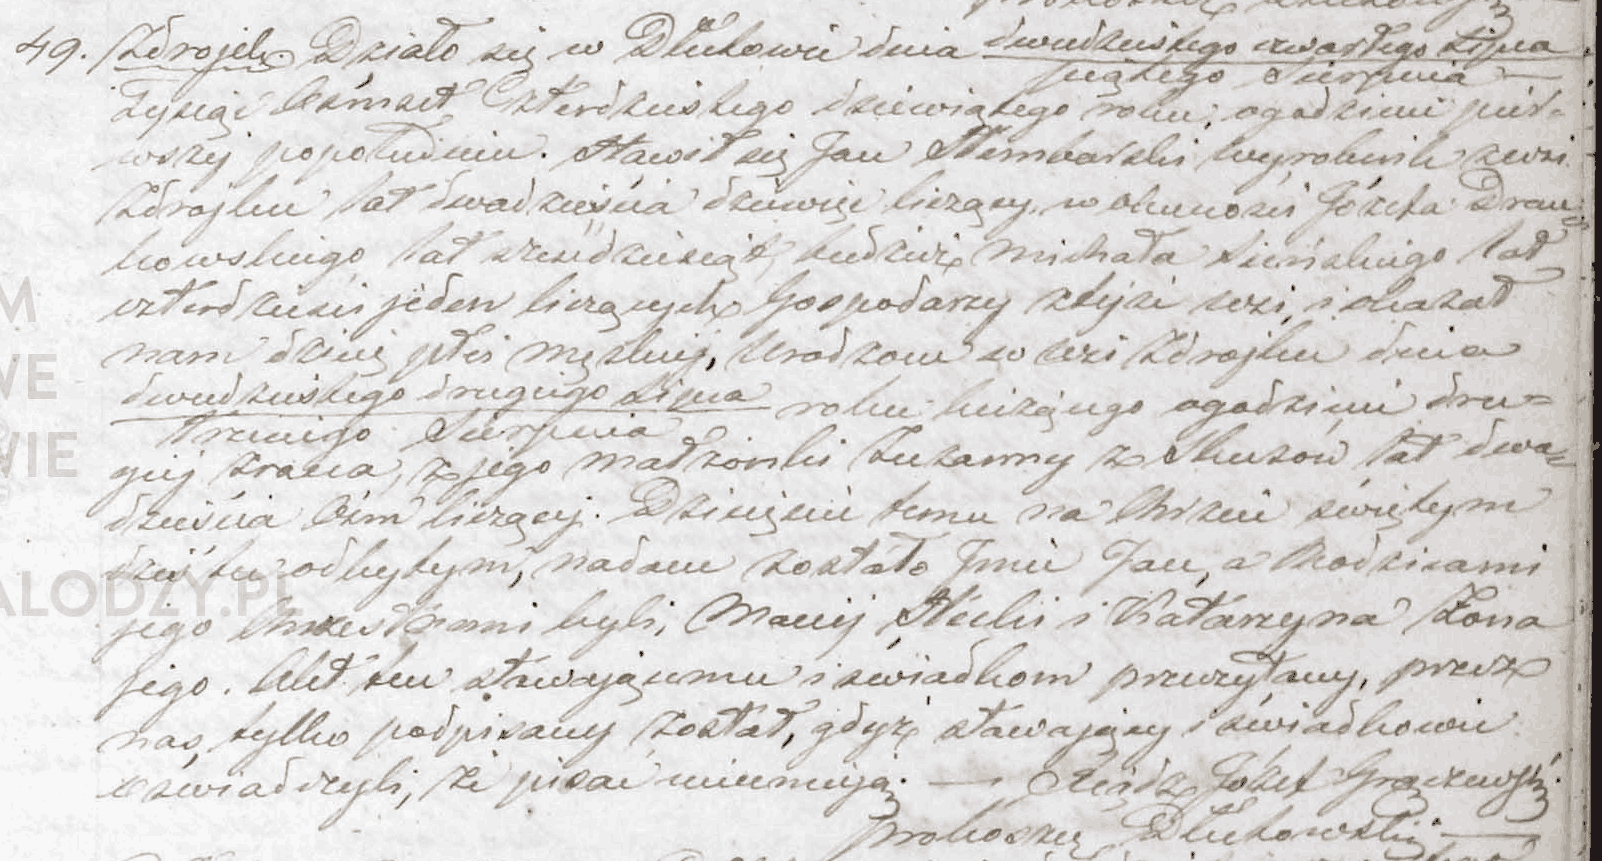 49. Zdrojek. Działo się w Dłutowie dnia dwudziestego czwartego Lipca
piątego Sierpnia
Tysiąc Ośmset Czterdziestego dziewiątego roku, o godzinie pier-
wszy popołudniu. Stawił się Jan Wyrobnik zewsi
Zdrojku lat dwadzieścia dziewięć liczący, w obecności Józefa
lat sześćdziesiąt, tudzież Michała lat
czterdzieści jeden liczących Gospodarzy z tejże wsi, i okazał
nam dziecię płci męzkiej, urodzone w wsi Zdrojku dnia
dwudziestego drugiego Lipca roku bieżącego o godzinie dru-
trzeciego Sierpnia
giej zrana, z jego małżonki Zuzanny z lat dwa-
dzieścia ośm liczącej. Dziecięciu temu na Chrzcie świętym
dziś tu odbytym, nadane zostało Imie Jan, a Rodzicami
jego Chrzestnemi byli, Maciej i Katarzyna Żona
jego. Akt ten stawającemu i świadkom przeczytany, przez
nas tylko podpisany został, gdyż stawający i świadkowie
oświadczyli, że pisać nieumieją. — Xiądz Józef
proboszcz Dłutowski —
M
WE
WIE
ALODZY.PL